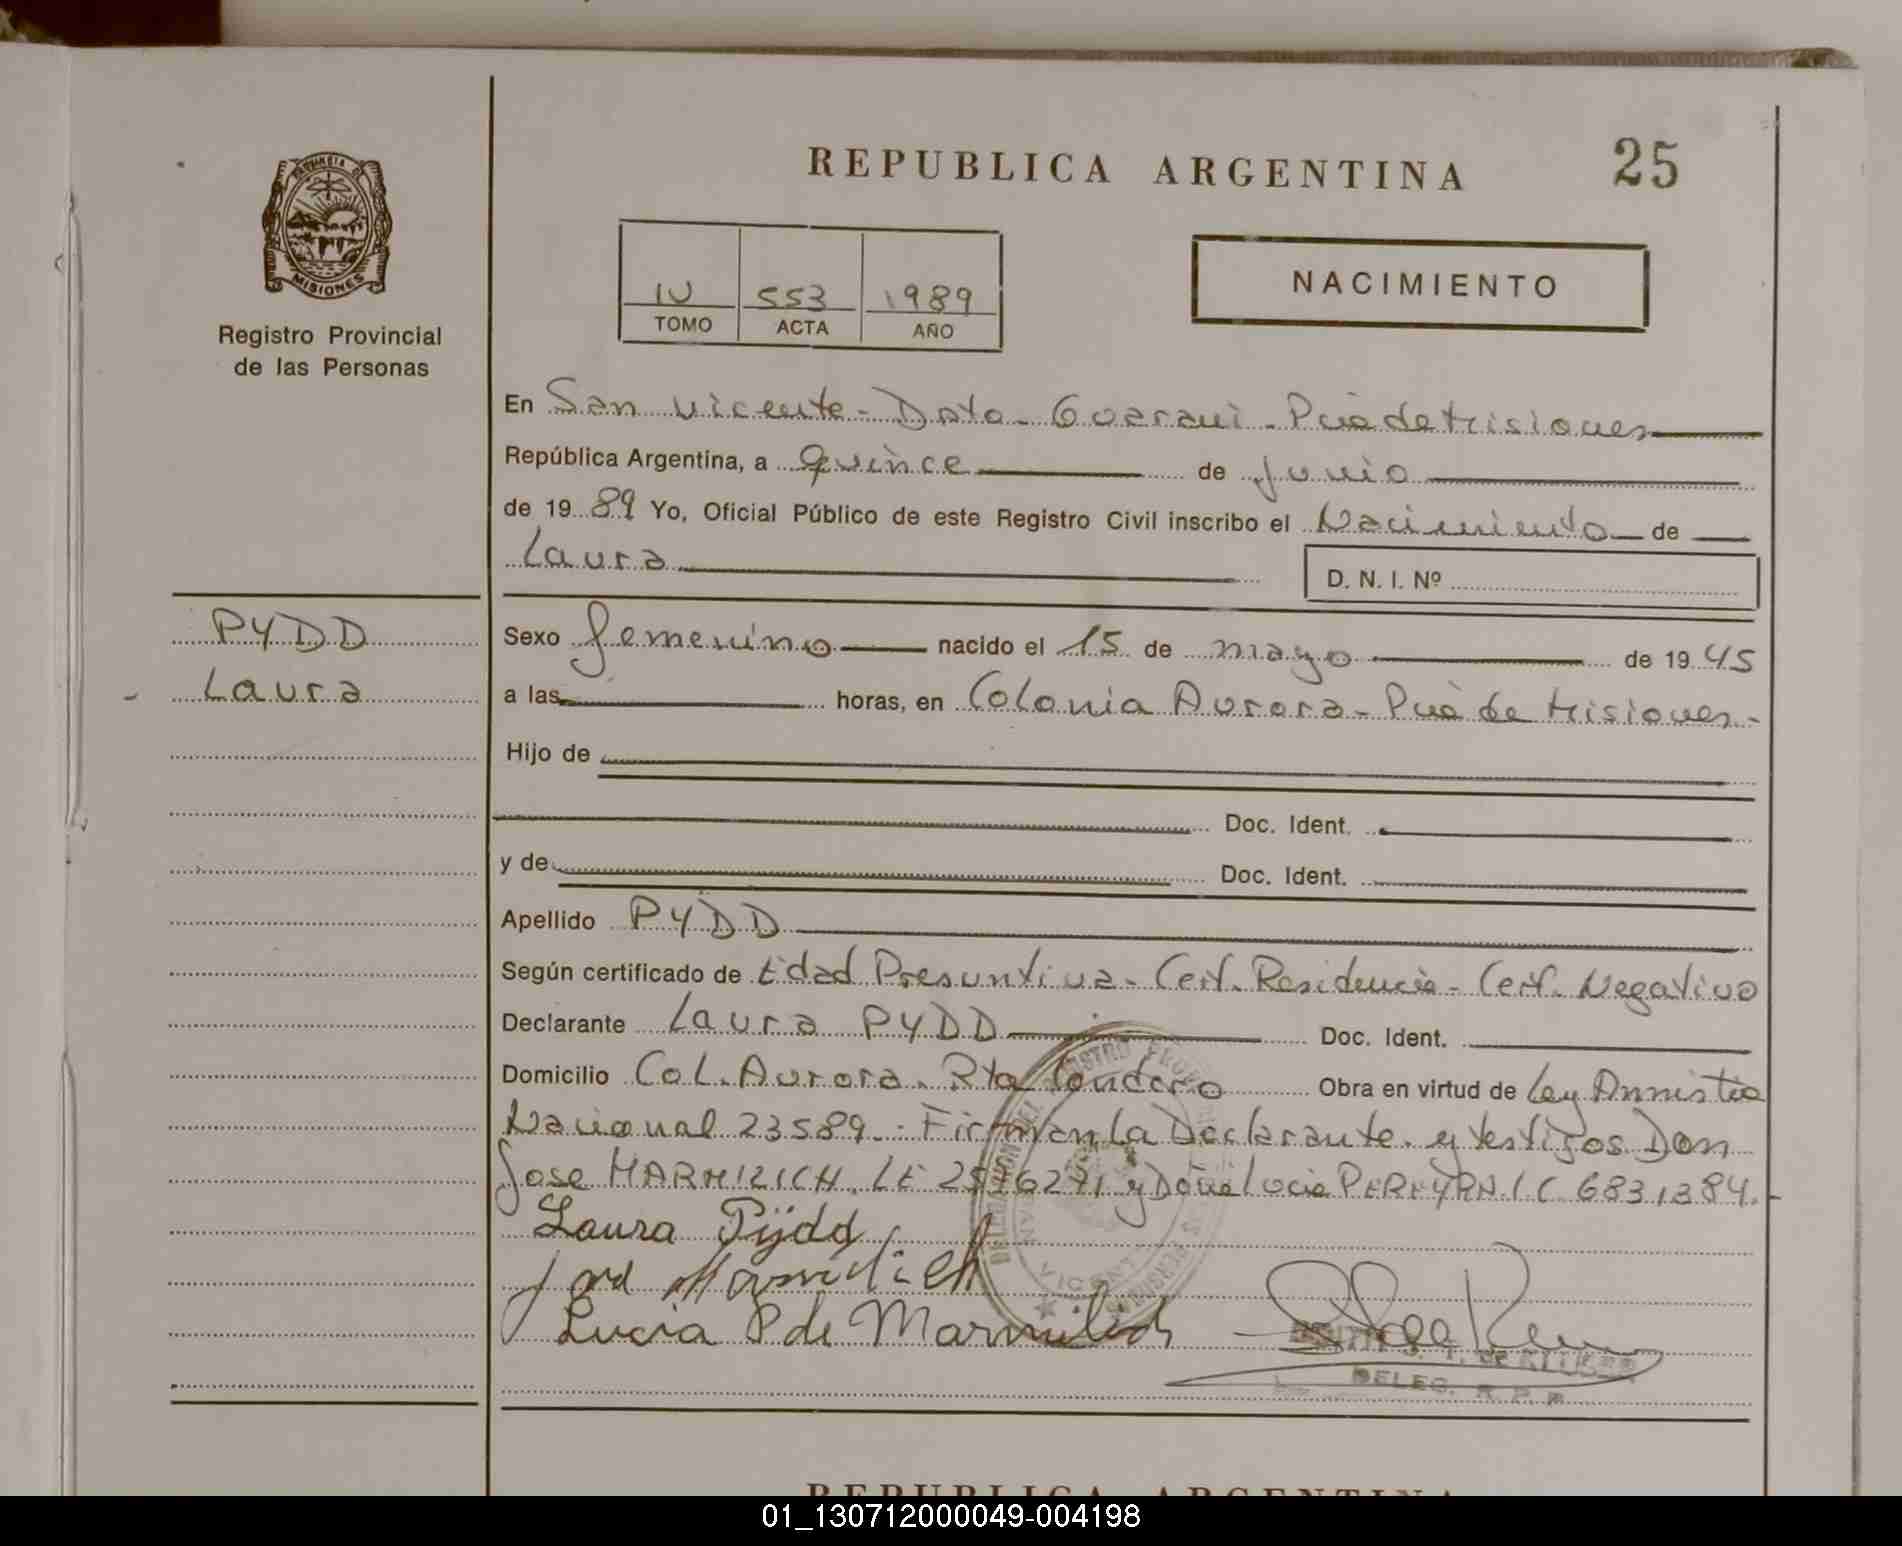 REPUBLICA ARGENTINA
25
PROVINCIA DE
MISIONES
Registro Provincial
de las Personas
IV 553 1989
TOMO ACTA AÑO
NACIMIENTO
En San Vicente - Dpto - Guarani - Pcia de Misiones
República Argentina, a Quince de Junio
de 1989 Yo, Oficial Público de este Registro Civil inscribo el Nacimiento de
Laura
D. N. I. Nº
PYDD
Laura
Sexo femenino nacido el 15 de mayo de 1945
a las horas, en Colonia Aurora - Pcia de Misiones -
Hijo de
Doc. Ident.
y de Doc. Ident.
Apellido PYDD
Según certificado de Edad Presuntiva - Cert. Residencia - Cert. Negativo
Declarante Laura PYDD Doc. Ident.
Domicilio Col. Aurora. Rta Obra en virtud de Ley Amnistia
Nacional 23589.- Firman la Declarante y testigos Don
Jose LE y Doña Lucia 6831384.-
Laura Pydd
Lucia P de Marmilich
DELEG. R. P. P.
REPUBLICA ARGENTINA
01_130712000049-004198